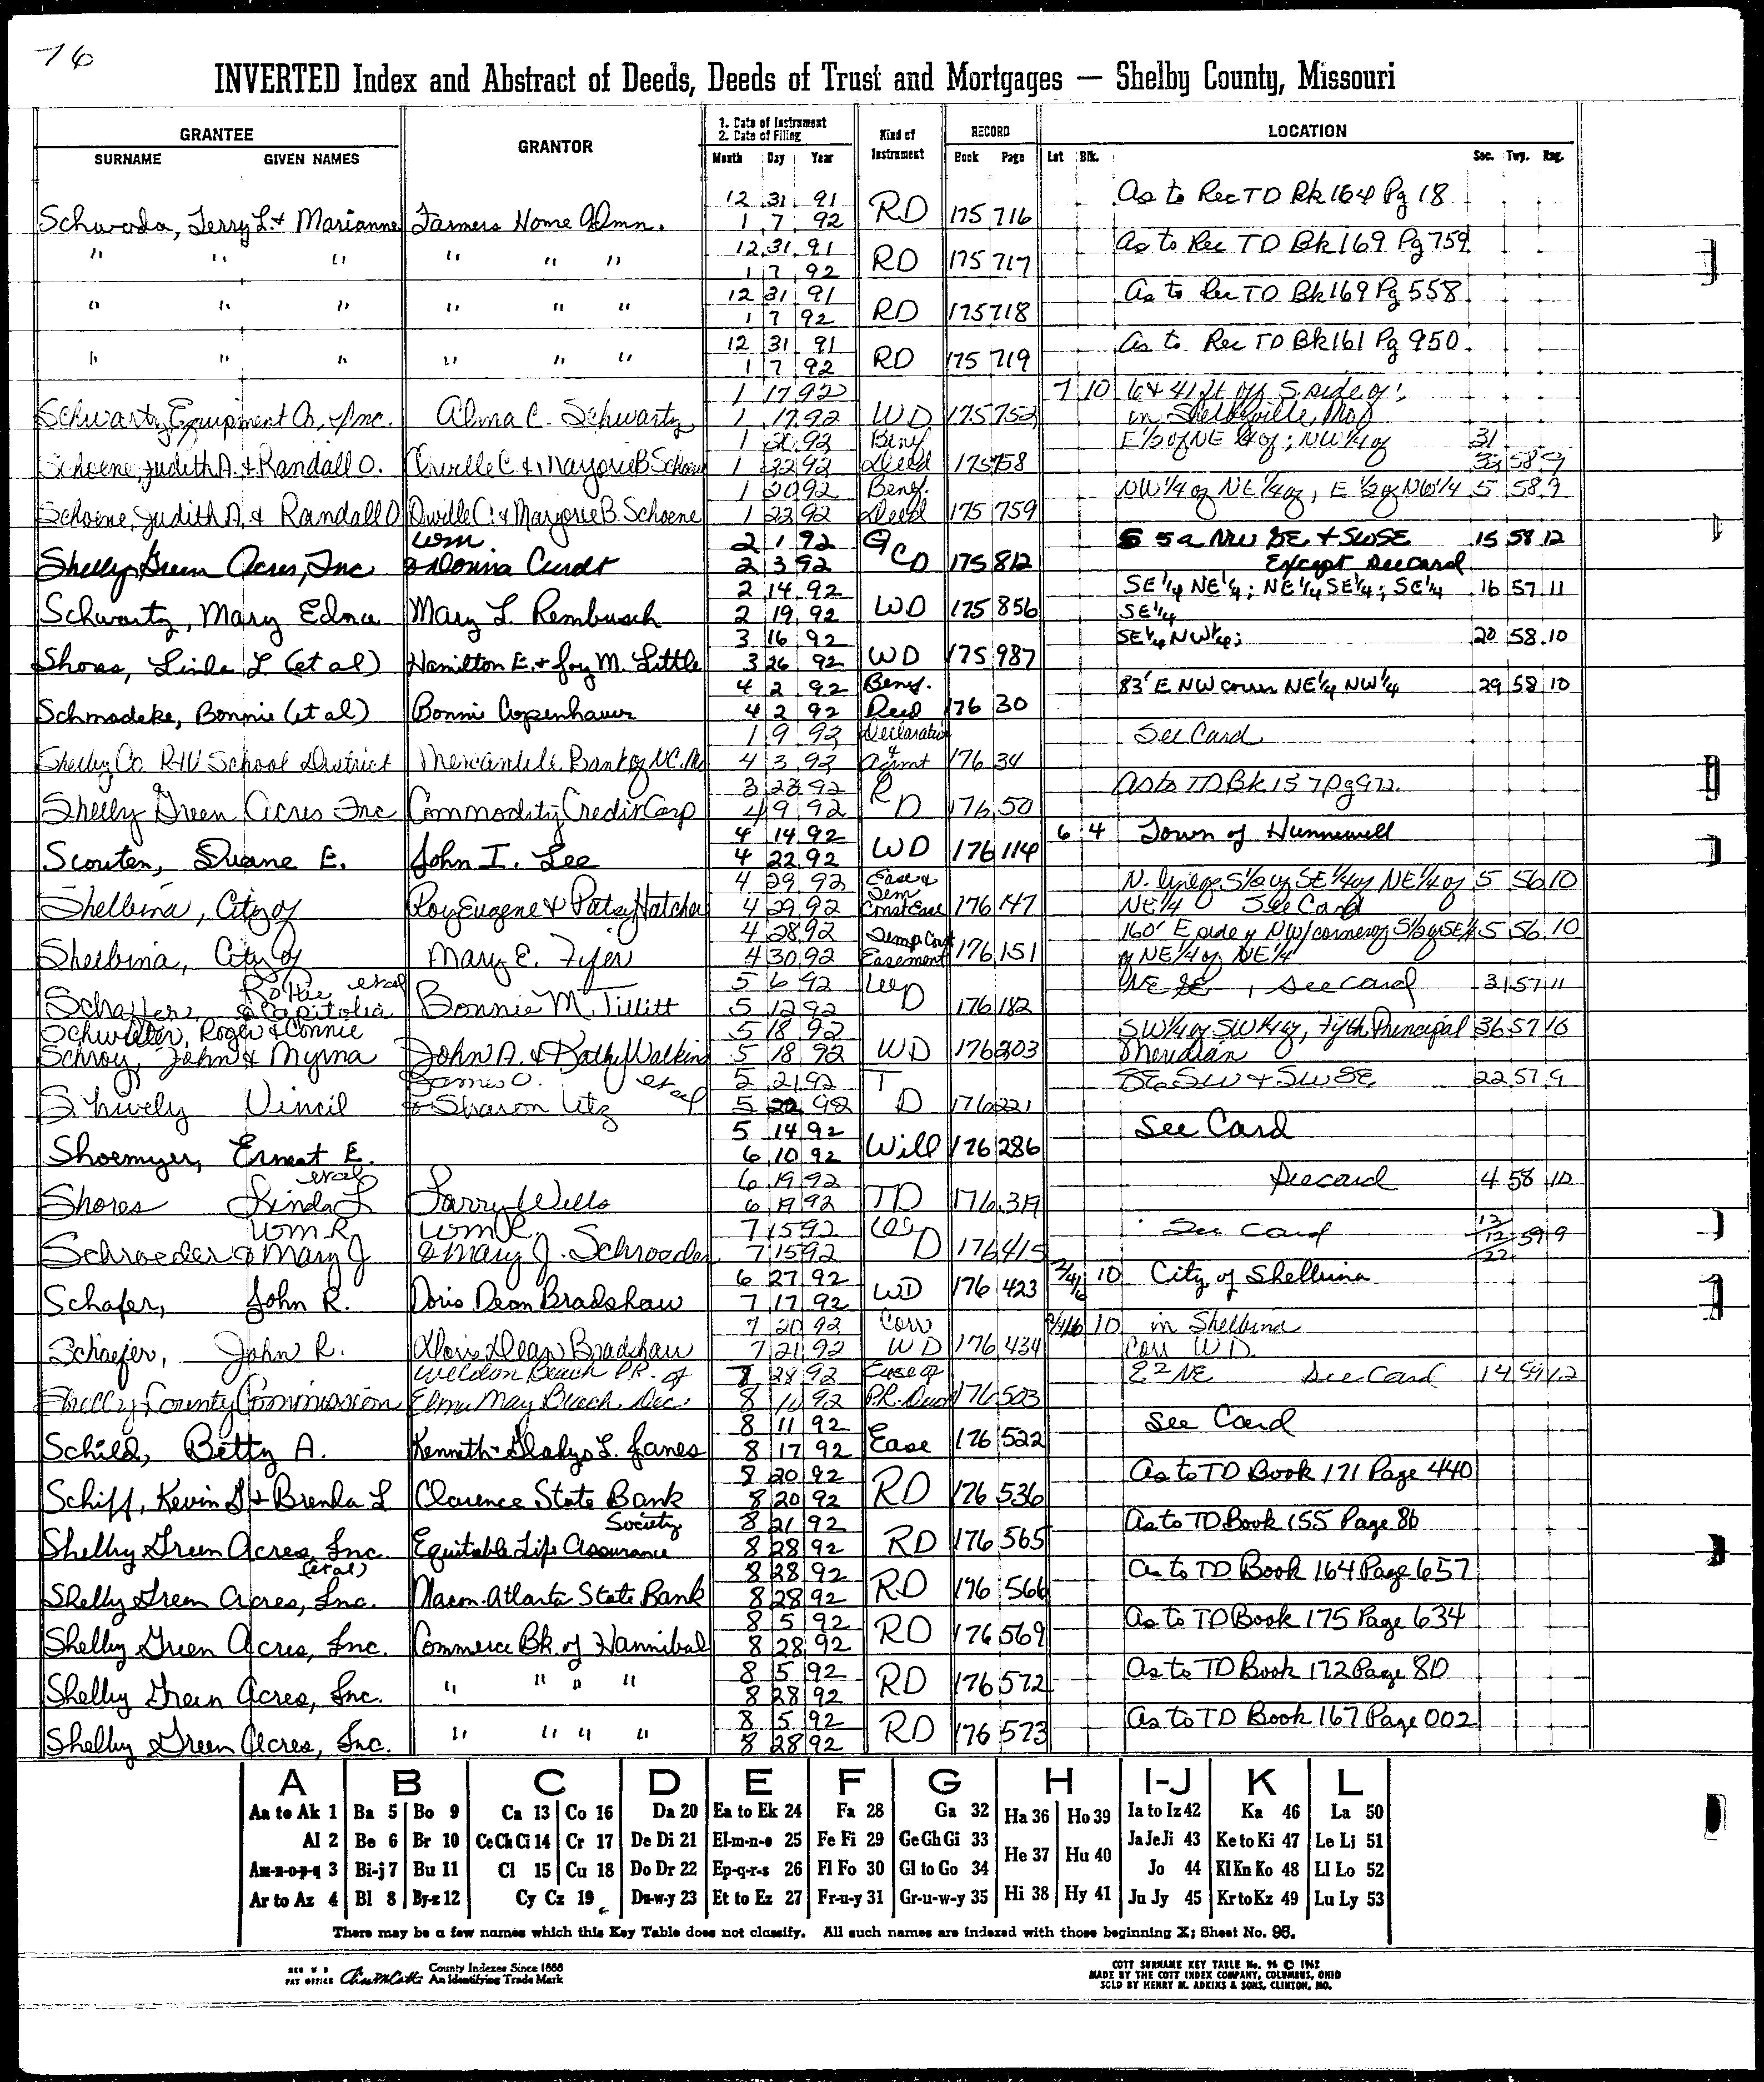 76
INVERTED Index and Abstract of Deeds, Deeds of Trust and Mortgages — Shelby County, Missouri
GRANTEE
SURNAME GIVEN NAMES
GRANTOR
1. Date of Instrument
2. Date of Filing
Month Day Year
Kind of Instrument
RECORD
Book Page
LOCATION
Lot Blk. Sec. Twp. Rng.
12 31 91 As to Rec TD Bk 164 Pg 18
Schwada, Terry L. & Marianne Farmers Home Admn. 1 7 92 RD 175 716
12 31 91 As to Rec TD Bk 169 Pg 759
" " " " " " 1 7 92 RD 175 717
12 31 91 As to Rec TD Bk 169 Pg 558
" " " " " " 1 7 92 RD 175 718
12 31 91 As to Rec TD Bk 161 Pg 950
" " " " " " 1 7 92 RD 175 719
1 17 92 7 10 6 & 41 ft off S. side of;
Schwartz Equipment Co., Inc. Alma C. Schwartz 1 17 92 WD 175 752 in Shelbyville, Mo
1 20 92 Benf. E 1/2 of NE 1/4 of; NW 1/4 of 31
Schoene, Judith A. & Randall O. Orville C. & Marjorie B. Schoene 1 22 92 Deed 175 758 32 58 9
1 20 92 Benf. NW 1/4 of NE 1/4 of, E 1/2 of NW 1/4 5 58 9
Schoene, Judith A. & Randall O Orville C. & Marjorie B. Schoene 1 22 92 Deed 175 759
Wm. 2 1 92 Q 5 a NW SE + SWSE 15 58 12
Shelby Green Acres, Inc & Donna Curdt 2 3 92 CD 175 812 Except See Card
2 14 92 SE 1/4 NE 1/4; NE 1/4 SE 1/4; SE 1/4 16 57 11
Schwartz, Mary Edna Mary L. Rembusch 2 19 92 WD 175 856 SE 1/4
3 16 92 SE 1/4 NW 1/4; 20 58 10
Shores, Linda L. (et al) Hamilton E. & Joy M. Little 3 26 92 WD 175 987
4 2 92 Benf. 83' E NW corner NE 1/4 NW 1/4 29 58 10
Schmadeke, Bonnie (et al) Bonnie Copenhaver 4 2 92 Deed 176 30
1 9 92 Declaration See Card
Shelby Co R-IV School District Mercantile Bank of N.C. Mo 4 3 92 & Agrmt 176 34
3 23 92 R As to TD Bk 157 Pg 972.
Shelby Green Acres Inc Commodity Credit Corp 4 9 92 D 176 50
4 14 92 6 4 Town of Hunnewell
Scouten, Duane E. John I. Lee 4 22 92 WD 176 114
4 29 92 Ease & Tem N. line of S 1/2 of SE 1/4 of NE 1/4 of 5 56 10
Shelbina, City of Roy Eugene & Patsy Hatcher 4 29 92 Const Ease 176 147 NE 1/4 See Card
4 28 92 Temp Const 160' E side of NW/corner of S 1/2 of SE 1/4 5 56 10
Shelbina, City of Mary E. Fifer 4 30 92 Easement 176 151 of NE 1/4 of NE 1/4
Rollie et al 5 6 92 NE SE, See Card 31 57 11
& Capitolia Bonnie M. Tillitt 5 12 92 D 176 182
Roger & Connie 5 18 92 SW 1/4 of SW 1/4 of, Fifth Principal 36 57 10
Schroy, John & Myrna John A. & Kathy Watkins 5 18 92 WD 176 203 Meridian
James O. et al 5 21 92 T SE SW & SW SE 22 57 9
Shively Vincil & Sharon Utz 5 22 92 D 176 221
5 14 92 See Card
Shoemyer, Ernest E. 6 10 92 Will 176 286
et al 6 19 92 See card 4 58 10
Shores Linda L Larry Wells 6 19 92 TD 176 319
Wm R Wm R. 7 15 92 See Card 59 9
Schroeder & Mary J & Mary J. Schroeder 7 15 92 D 176 415
6 27 92 10 City of Shelbina
Schafer, John R. Doris Dean Bradshaw 7 17 92 WD 176 423
7 20 92 Corr 10 in Shelbina
Schaefer, John R. Doris Dean Bradshaw 7 21 92 WD 176 434 Corr WD
Weldon Beach P.R. of 28 92 Ease of NE See Card 14 59 12
Shelby County Commission Elma May Beach, Dec. 8 92 P.R. Deed 176 503
8 11 92 See Card
Schild, Betty A. Kenneth & Gladys L. Janes 8 17 92 Ease 176 522
8 20 92 As to TD Book 171 Page 440
Schiff, Kevin & Brenda L Clarence State Bank 8 20 92 RD 176 536
Society 8 21 92 As to TD Book 155 Page 86
Shelby Green Acres, Inc. Equitable Life Assurance 8 28 92 RD 176 565
(et al) 8 28 92 As to TD Book 164 Page 657
Shelby Green Acres, Inc. Macon-Atlanta State Bank 8 28 92 RD 176 566
8 5 92 As to TD Book 175 Page 634
Shelby Green Acres, Inc. Commerce Bk. of Hannibal 8 28 92 RD 176 569
8 5 92 As to TD Book 172 Page 80
Shelby Green Acres, Inc. " " " " 8 28 92 RD 176 572
8 5 92 As to TD Book 167 Page 002
Shelby Green Acres, Inc. " " " " 8 28 92 RD 176 573
A B C D E F G H I-J K L
Aa to Ak 1 Ba 5 Bo 9 Ca 13 Co 16 Da 20 Ea to Ek 24 Fa 28 Ga 32 Ha 36 Ho 39 Ia to Iz 42 Ka 46 La 50
Al 2 Be 6 Br 10 Ce Ch Ci 14 Cr 17 De Di 21 El-m-n-o 25 Fe Fi 29 Ge Gh Gi 33 He 37 Hu 40 Ja Je Ji 43 Ke to Ki 47 Le Li 51
Am-n-o-p-q 3 Bi-j 7 Bu 11 Cl 15 Cu 18 Do Dr 22 Ep-q-r-s 26 Fl Fo 30 Gl to Go 34 Jo 44 Kl Kn Ko 48 Ll Lo 52
Ar to Az 4 Bl 8 By-z 12 Cy Cz 19 Du-w-y 23 Et to Ez 27 Fr-u-y 31 Gr-u-w-y 35 Hi 38 Hy 41 Ju Jy 45 Kr to Kz 49 Lu Ly 53
There may be a few names which this Key Table does not classify. All such names are indexed with those beginning X; Sheet No. 95.
REG U S PAT OFFICE County Indexes Since 1888 An Identifying Trade Mark
COTT SURNAME KEY TABLE No. 96 © 1962
MADE BY THE COTT INDEX COMPANY, COLUMBUS, OHIO
SOLD BY HENRY M. ADKINS & SONS, CLINTON, MO.